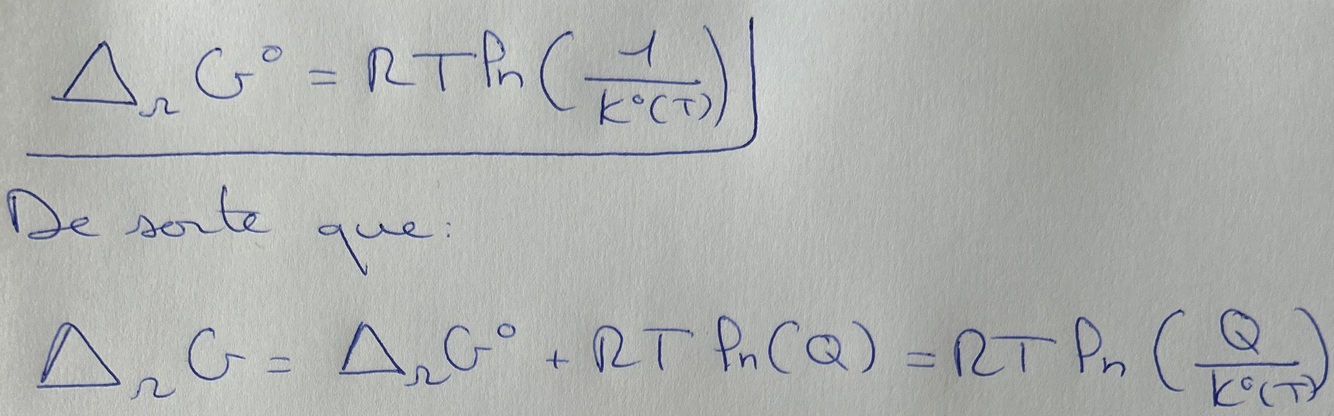 Δ_r G° = RT ln(1/K°(T))
De sorte que:
Δ_r G = Δ_r G° + RT ln(Q) = RT ln(Q/K°(T))